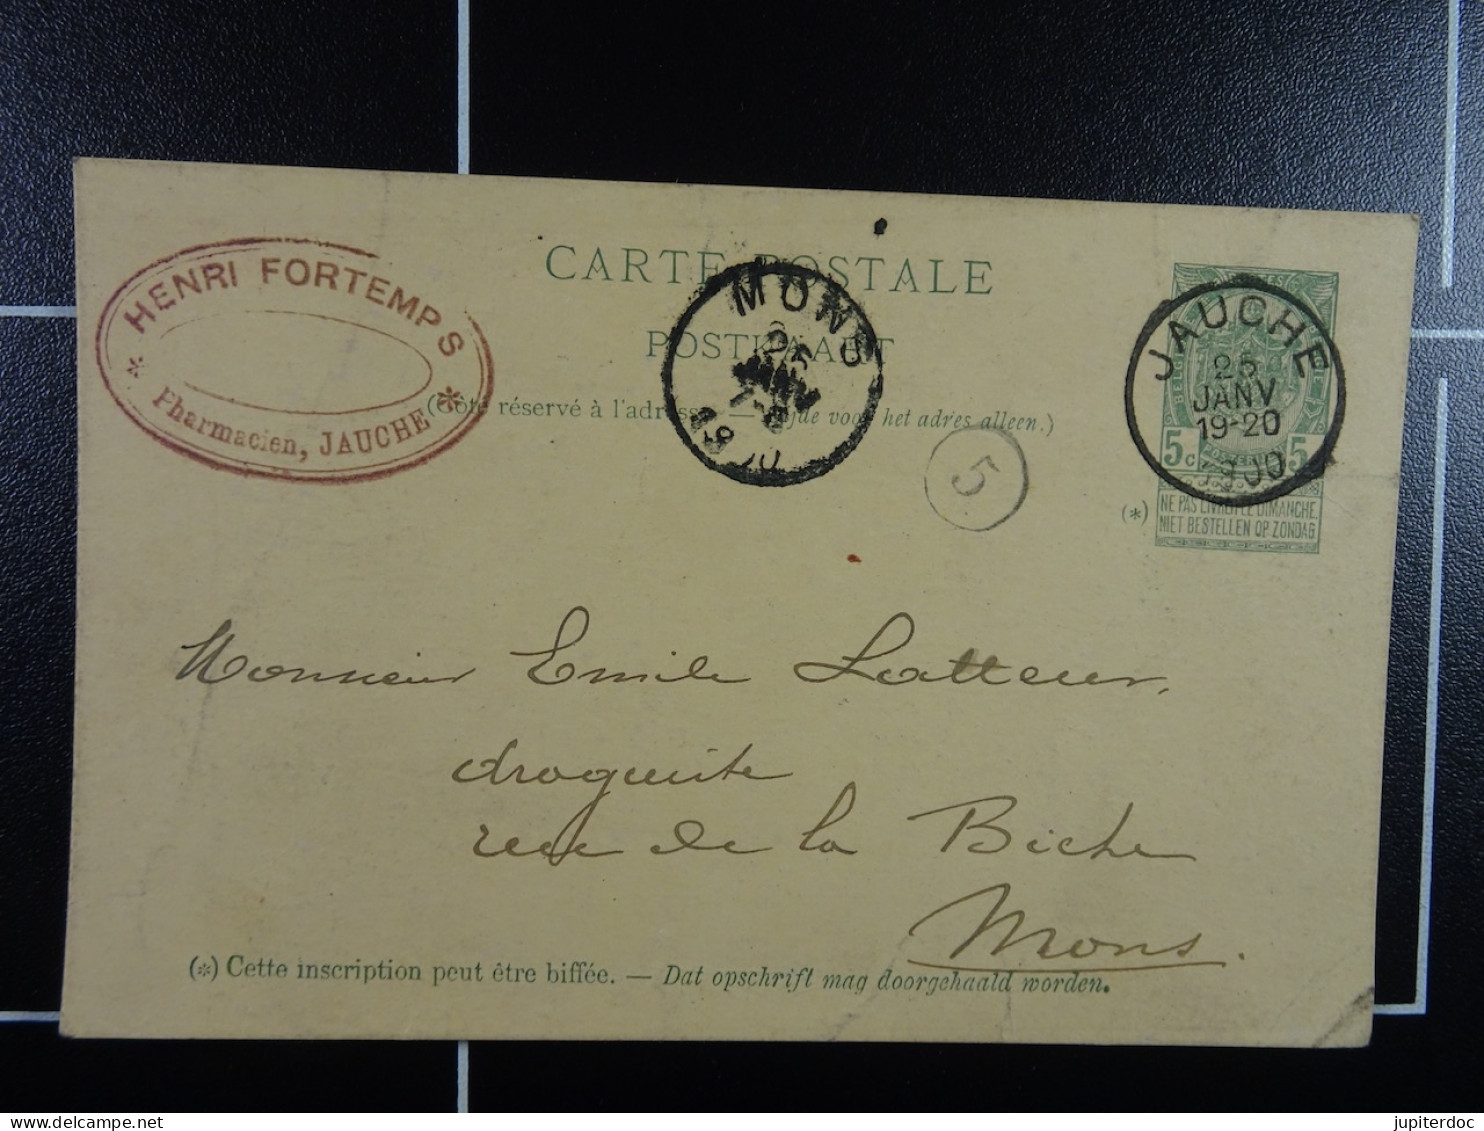 HENRI FORTEMPS
* Pharmacien, JAUCHE *
CARTE POSTALE
POSTKAART
(Côté réservé à l'adresse. — Zijde voor het adres alleen.)
MONS
26
JANV
1900
5
JAUCHE
25
JANV
19-20
1900
5 c 5
(*)
NE PAS LIVRER LE DIMANCHE
NIET BESTELLEN OP ZONDAG
Monsieur Emile Latteur,
droguiste
rue de la Biche
Mons.
(*) Cette inscription peut être biffée. — Dat opschrift mag doorgehaald worden.
jupiterdoc